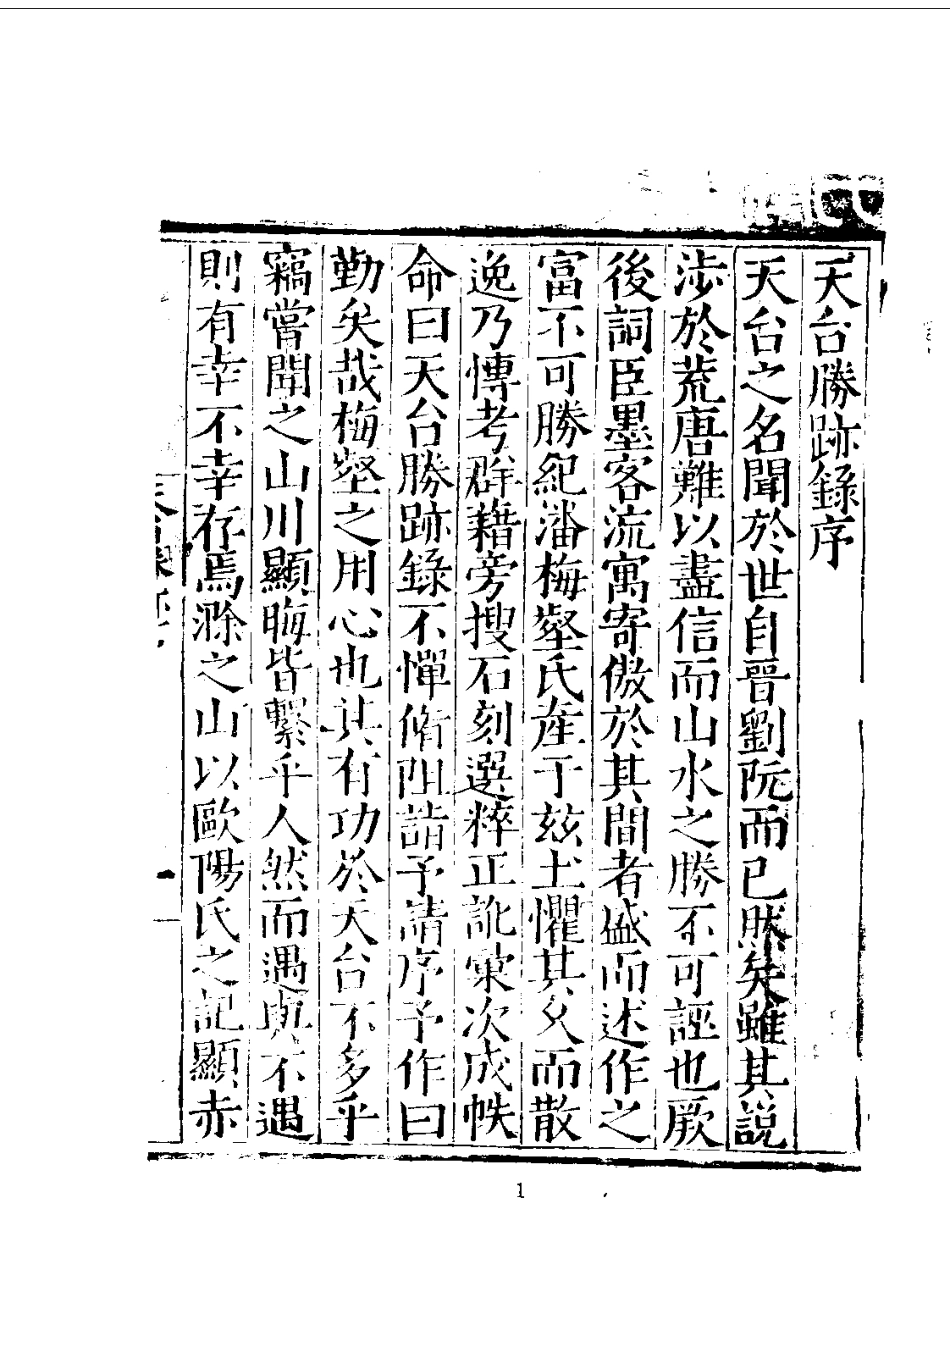 天台勝跡錄序
天台之名聞於世自晉劉阮而已然矣雖其説
涉於荒唐難以盡信而山水之勝不可誣也厥
後詞臣墨客流寓寄傲於其間者盛而述作之
富不可勝紀潘梅壑氏産于玆土懼其久而散
逸乃慱考群籍旁搜石刻選粹正訛彙次成帙
命曰天台勝跡錄不憚脩阻詣予請序予作曰
勤矣哉梅壑之用心也其有功於天台不多乎
竊嘗聞之山川顯晦皆繫乎人然而遇與不遇
則有幸不幸存焉滁之山以歐陽氏之記顯赤
1